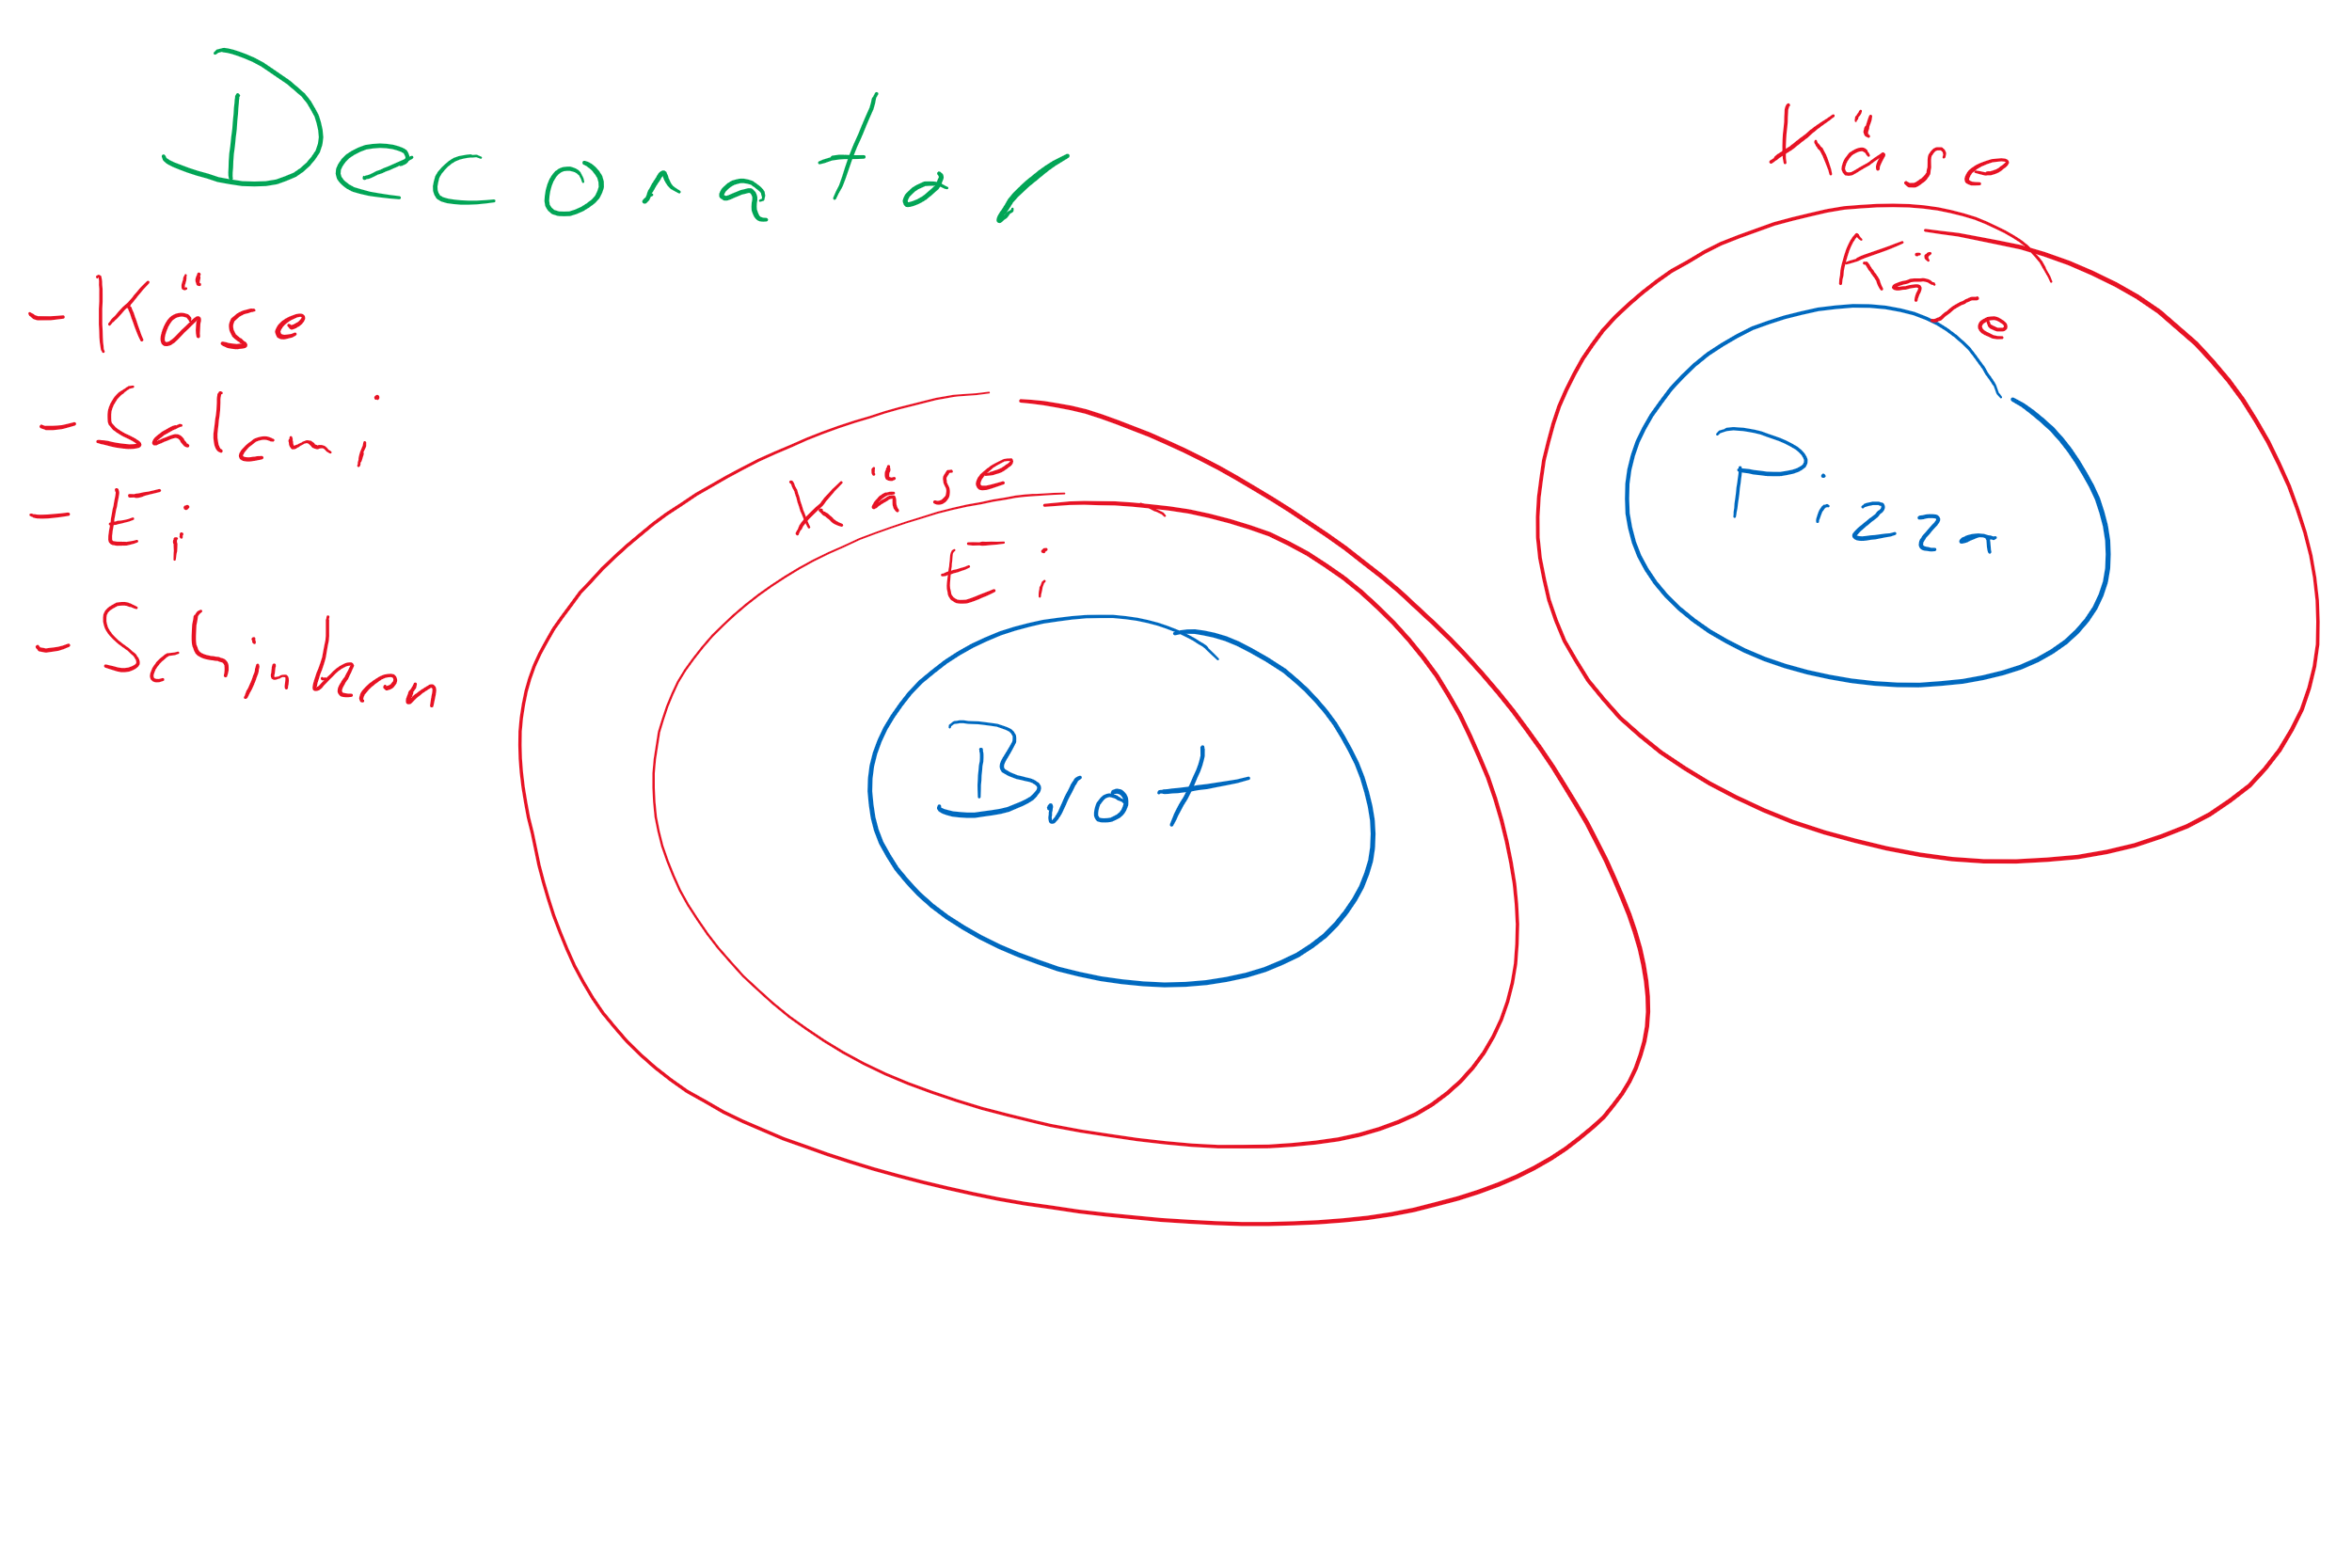 Decorator
- Käse
- Salami
- Ei
- Schinken
Käse
Ei
Brot
Käse
Käse
Pizza